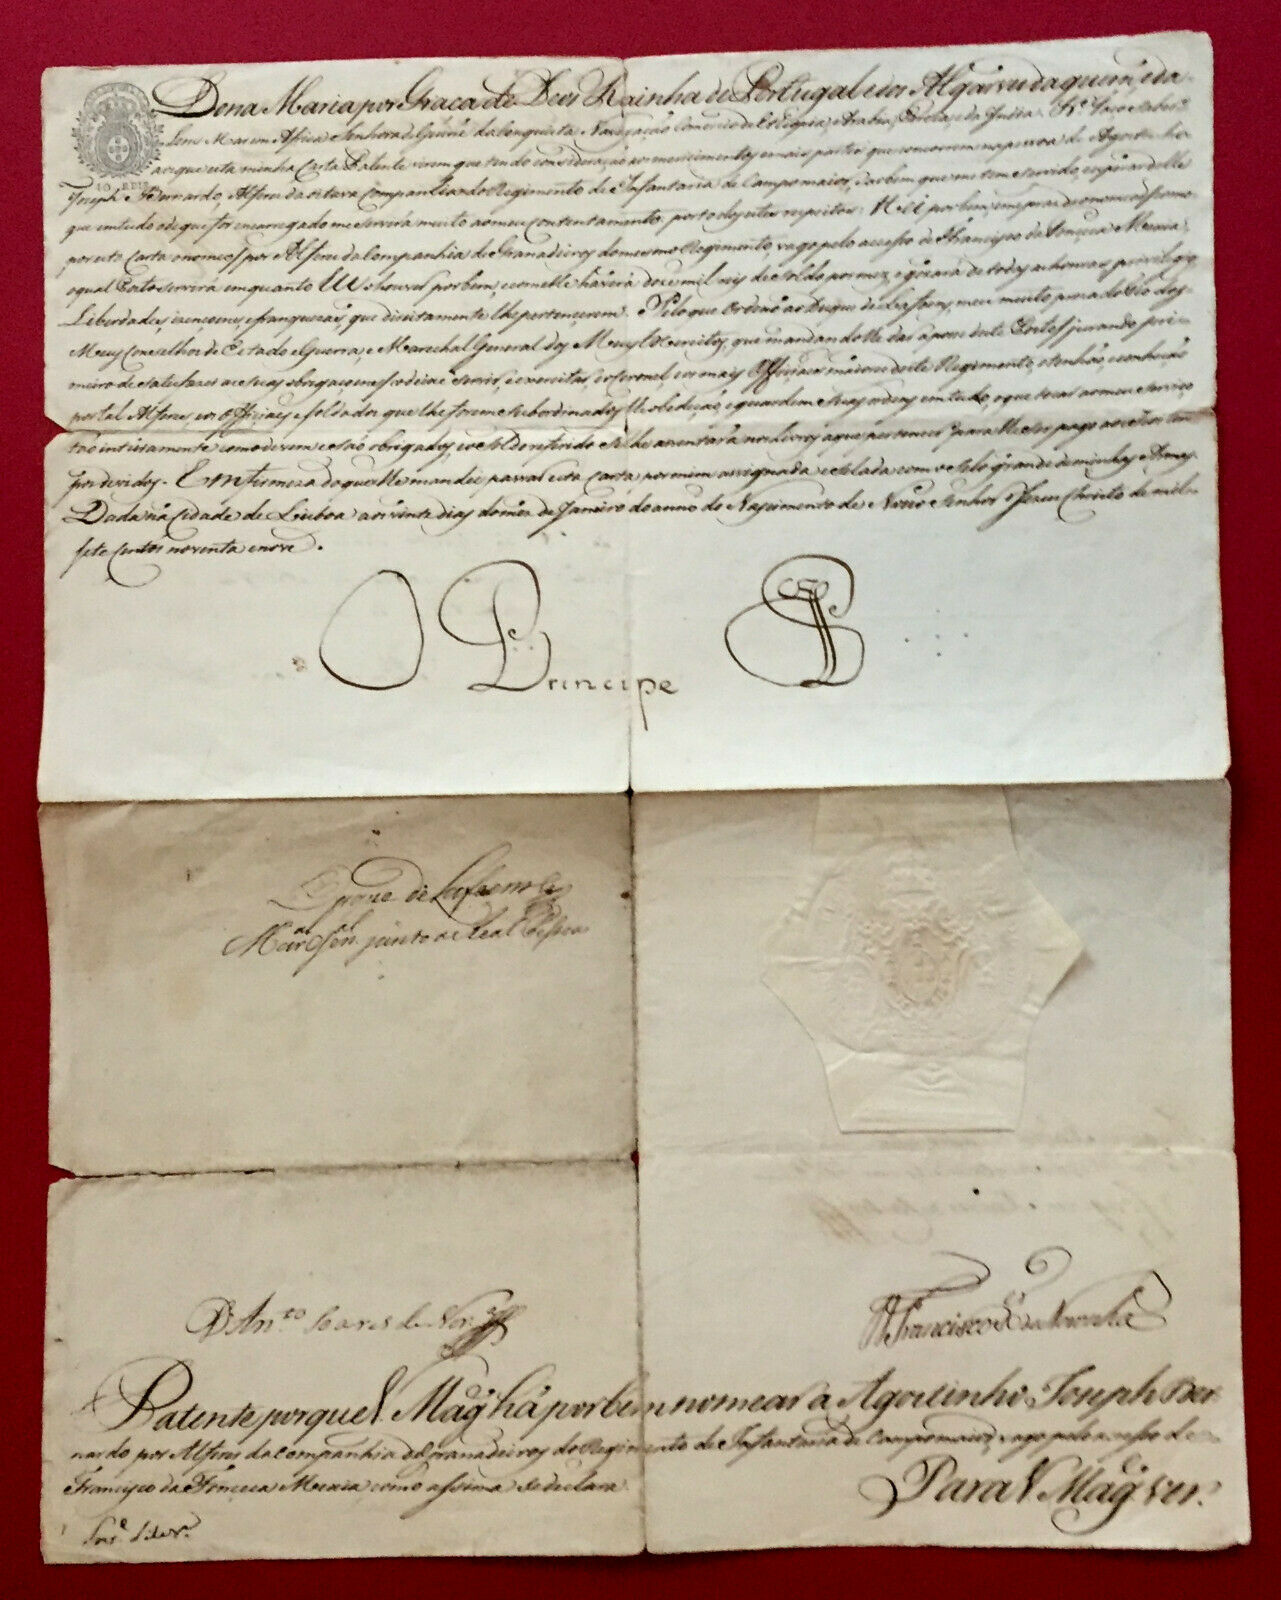 Dona Maria por Graça de Deos Rainha de Portugal e dos Algarves daquem, e da-
lem Mar em Africa Senhora de Guiné e da Conquista Navegação Comercio da Ethiopia, Arabia, Persia, e da India. Faço Saber
aos que esta minha Carta Patente virem que tendo consideração ao merecimento, e mais partes que concorrem na pessoa de Agostinho
Joseph Bernardo, Alferes da oitava Companhia do Regimento de Infantaria de Campo maior, e ao bem que me tem servido, e esperar delle
que em tudo o de que for encarregado me servirá muito a meu contentamento, por todos estes respeitos: Hei por bem, e me praz de o nomear, como
por esta Carta o nomeo, por Alferes da Companhia de Granadeiros do mesmo Regimento, vago pelo accesso de Francisco da Fonseca Mexia,
o qual Posto servirá em quanto Eu o houver por bem, e com elle haverá doze mil reis de Soldo por mez, e gozará de todas as honras, privilegios
Liberdades, izenções, e franquezas, que direitamente lhe pertencerem. Pelo que Ordeno ao Duque de Lafoens, meu muito prezado Tio dos
Meus Conselhos de Estado e Guerra, e Marechal General dos Meus Exercitos, que mandando-lhe dar a posse deste Posto, jurando pri-
meiro de satisfazer as suas obrigações o deixe servir, e exercitar, e o Coronel e os mais Officiaes maiores deste Regimento, o tenhão, e conheção
por tal Alferes, e os Officiaes e soldados que lhe forem subordinados lhe obedeção, e guardem suas ordens em tudo, o que tocar ao meu serviço
tão inteiramente como devem e são obrigados, e o soldo referido se lhe assentará nos livros a que pertencer para lhe ser pago aos seus tem-
pos devidos. Em firmeza do que lhe mandei passar esta Carta por mim assignada e selada com o selo grande de minhas Armas.
Dada na Cidade de Lisboa aos vinte dias do mez de Janeiro do anno do Nascimento de Nosso Senhor Jesus Christo de mil
sete centos noventa e nove.
O Principe
Duque de Lafoens
Mar.al Gen.al junto a Real Pessoa
An.to Soares de
Francisco da Noronha
Patente porque V. Mag.e há por bem nomear a Agostinho Joseph Ber-
nardo por Alferes da Companhia de Granadeiros do Regimento de Infantaria de Campo maior, vago pelo accesso de
Francisco da Fonseca Mexia, como assima se declara
Para V. Mag.e ver.